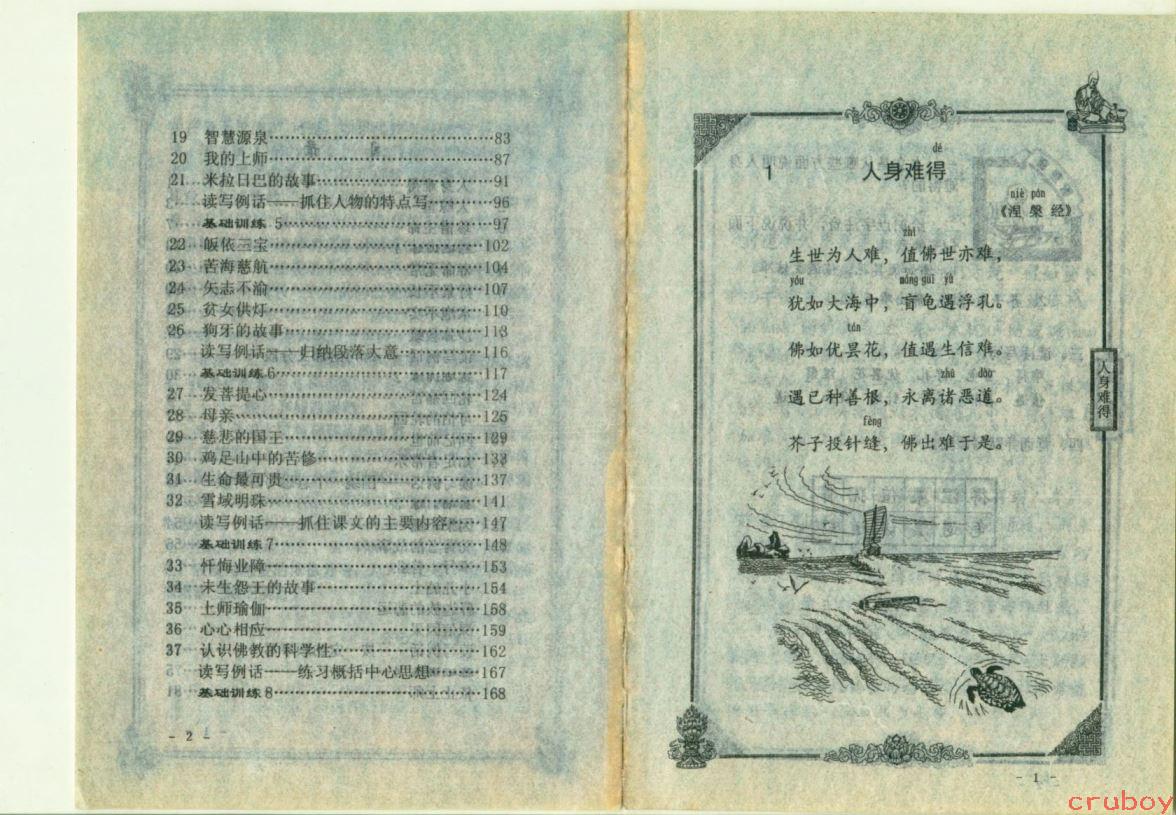 19 智慧源泉……83
20 我的上师……87
21 米拉日巴的故事……91
读写例话——抓住人物的特点写……96
基础训练 5……97
22 皈依三宝……102
23 苦海慈航……104
24 矢志不渝……107
25 贫女供灯……110
26 狗牙的故事……113
读写例话——归纳段落大意……116
基础训练 6……117
27 发菩提心……124
28 母亲……125
29 慈悲的国王……129
30 鸡足山中的苦修……133
31 生命最可贵……137
32 雪域明珠……141
读写例话——抓住课文的主要内容……147
基础训练 7……148
33 忏悔业障……153
34 未生怨王的故事……154
35 上师瑜伽……158
36 心心相应……159
37 认识佛教的科学性……162
读写例话——练习概括中心思想……167
基础训练 8……168
- 2 -
dé
1 人身难得
niè pán
《涅槃经》
zhí
生世为人难，值佛世亦难，
yóu máng guī yù
犹如大海中，盲龟遇浮孔。
tán
佛如优昙花，值遇生信难。
zhū dào
遇已种善根，永离诸恶道。
fèng
芥子投针缝，佛出难于是。
人身难得
- 1 -
cruboy